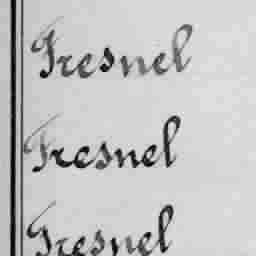 Fresnel
Fresnel
Fresnel